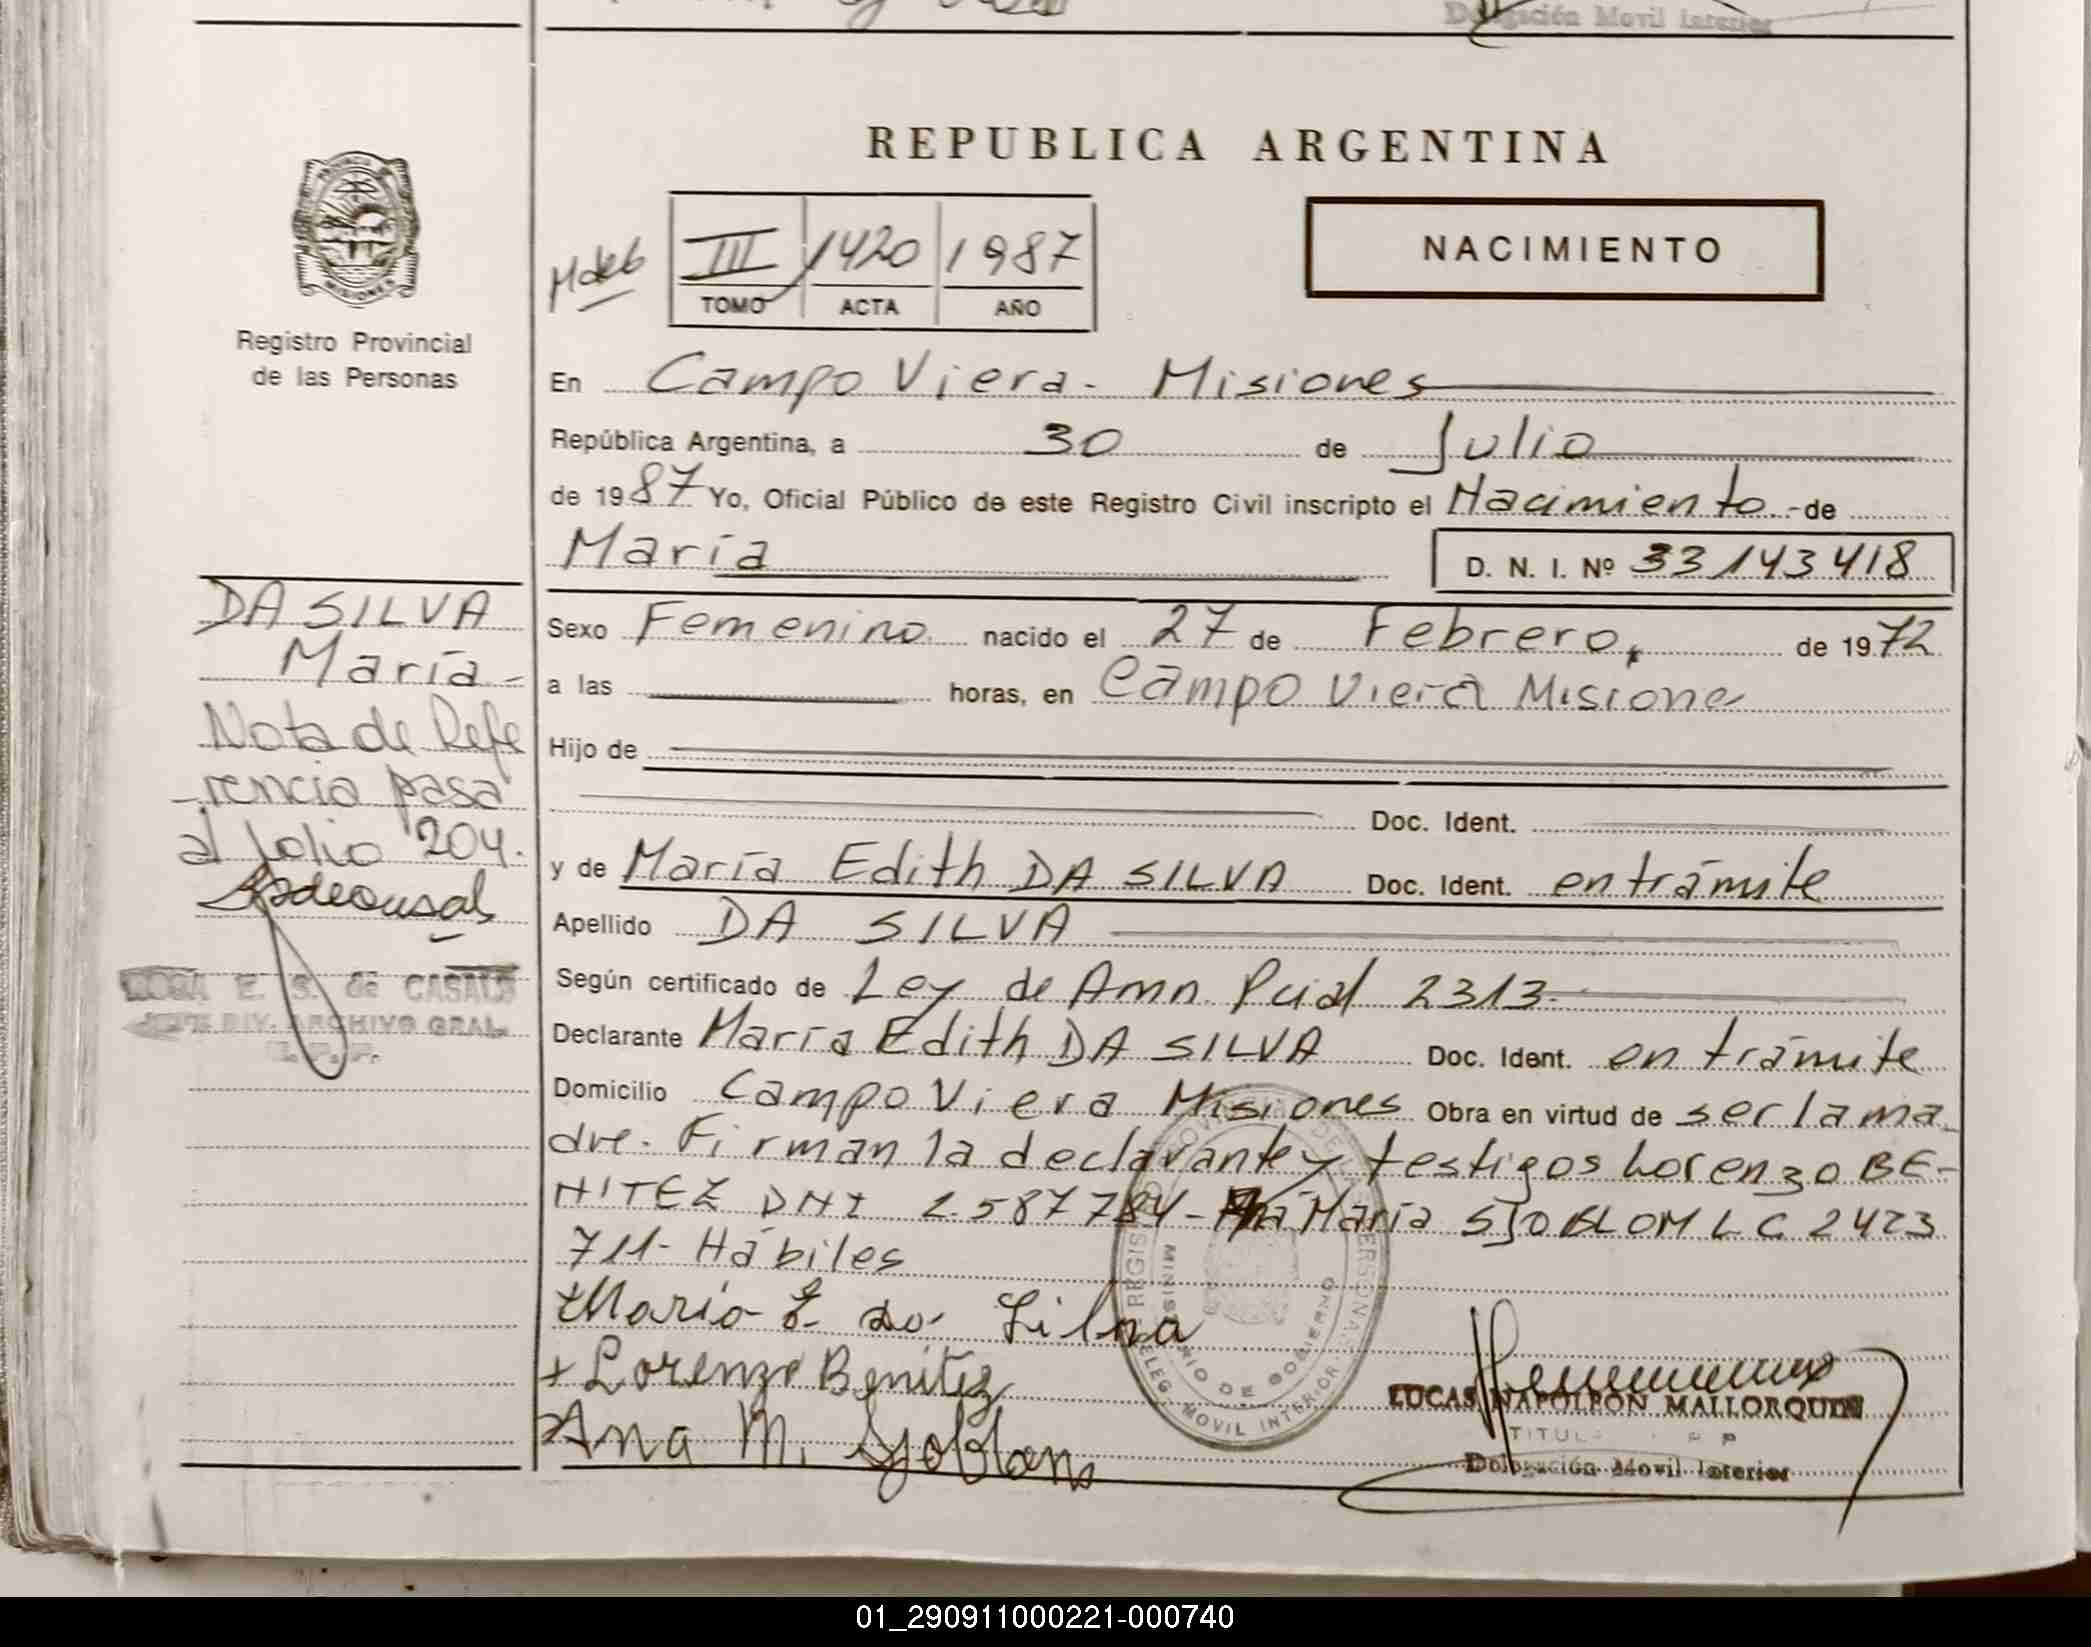 Delegación Movil Interior
REPUBLICA ARGENTINA
PROVINCIA DE
MISIONES
III 1420 1987
TOMO ACTA AÑO
NACIMIENTO
Registro Provincial
de las Personas
En Campo Viera - Misiones
República Argentina, a 30 de Julio
de 1987 Yo, Oficial Público de este Registro Civil inscripto el Nacimiento - de
María D. N. I. Nº 33143418
Sexo Femenino nacido el 27 de Febrero, de 1972
a las horas, en Campo Viera Misiones
Hijo de
Doc. Ident.
y de María Edith DA SILVA Doc. Ident. en trámite
Apellido DA SILVA
Según certificado de Ley de Amn. Pcial 2313.
Declarante María Edith DA SILVA Doc. Ident. en trámite
Domicilio Campo Viera Misiones Obra en virtud de ser la ma
dre. Firman la declarante y testigos Lorenzo BE-
NITEZ DNI 2.587784 - Ana María SJOBLOM LC 2423
711 - Hábiles
María E da Silva
+ Lorenzo Benitez
Ana M. Sjoblom
LUCAS NAPOLEON MALLORQUIN
TITULAR R P
Delegación Movil Interior
MINISTERIO DE GOBIERNO
DELEG. MOVIL INTERIOR
DA SILVA
María -
Nota de Refe
rencia pasa
al folio 204.
ROSA E. S. de CASALS
JEFE DIV. ARCHIVO GRAL.
R. P. P.
01_290911000221-000740